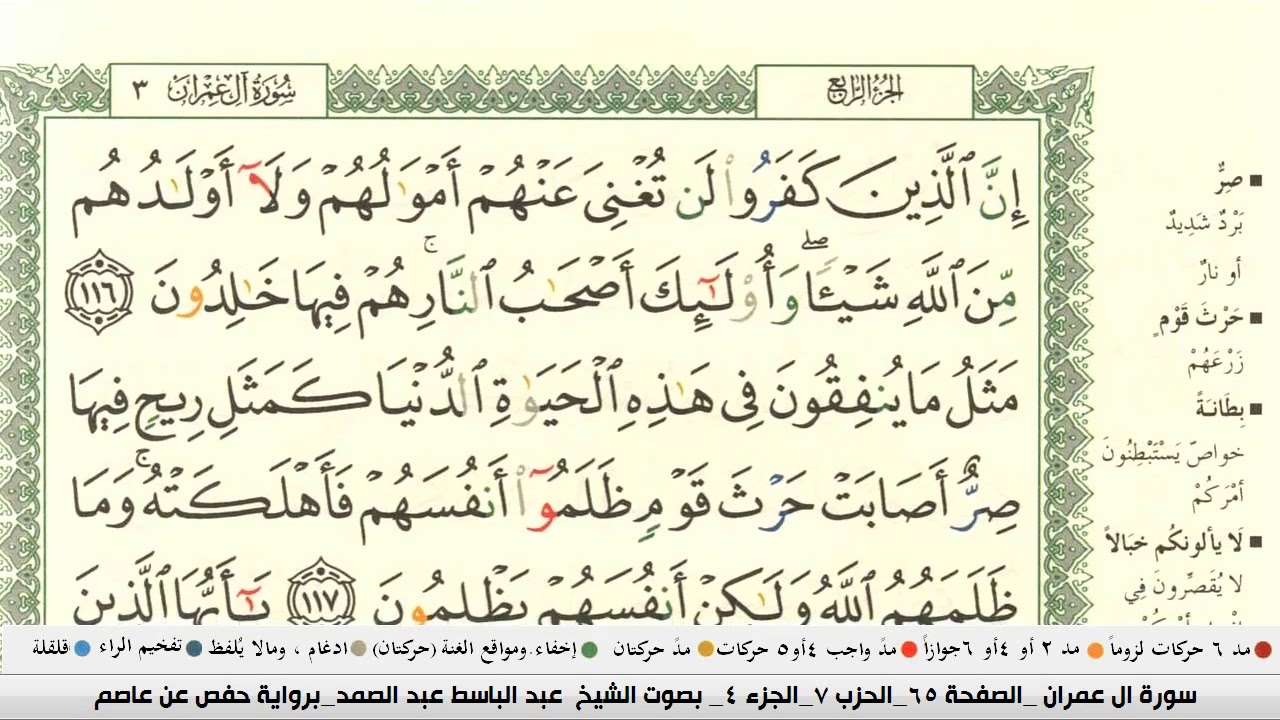 الجزء الرابع
سورة آل عمران ٣
إِنَّ ٱلَّذِينَ كَفَرُوا۟ لَن تُغْنِىَ عَنْهُمْ أَمْوَٰلُهُمْ وَلَآ أَوْلَـٰدُهُم
مِّنَ ٱللَّهِ شَيْـًٔا ۖ وَأُو۟لَـٰٓئِكَ أَصْحَـٰبُ ٱلنَّارِ ۚ هُمْ فِيهَا خَـٰلِدُونَ ١١٦
مَثَلُ مَا يُنفِقُونَ فِى هَـٰذِهِ ٱلْحَيَوٰةِ ٱلدُّنْيَا كَمَثَلِ رِيحٍ فِيهَا
صِرٌّ أَصَابَتْ حَرْثَ قَوْمٍ ظَلَمُوٓا۟ أَنفُسَهُمْ فَأَهْلَكَتْهُ ۚ وَمَا
ظَلَمَهُمُ ٱللَّهُ وَلَـٰكِنْ أَنفُسَهُمْ يَظْلِمُونَ ١١٧ يَـٰٓأَيُّهَا ٱلَّذِينَ
■ صِرٌّ
بَرْدٌ شَدِيدٌ
أو نارٌ
■ حَرْثَ قَوْمٍ
زَرْعَهُمْ
■ بِطَانَةً
خواصّ يَسْتَبْطِنُونَ
أمْرَكُمْ
■ لَا يألونكُم خبَالاً
لا يُقَصِّرُونَ فِي
مد ٦ حركات لزوماً مد ٢ أو ٤ أو ٦ جوازاً مدّ واجب ٤ أو ٥ حركات مدّ حركتان إخفاء. ومواقع الغنة (حركتان) ادغام ، ومالا يُلفظ تفخيم الراء قلقلة
سورة ال عمران _الصفحة ٦٥_الحزب ٧_الجزء ٤_ بصوت الشيخ عبد الباسط عبد الصمد_برواية حفص عن عاصم